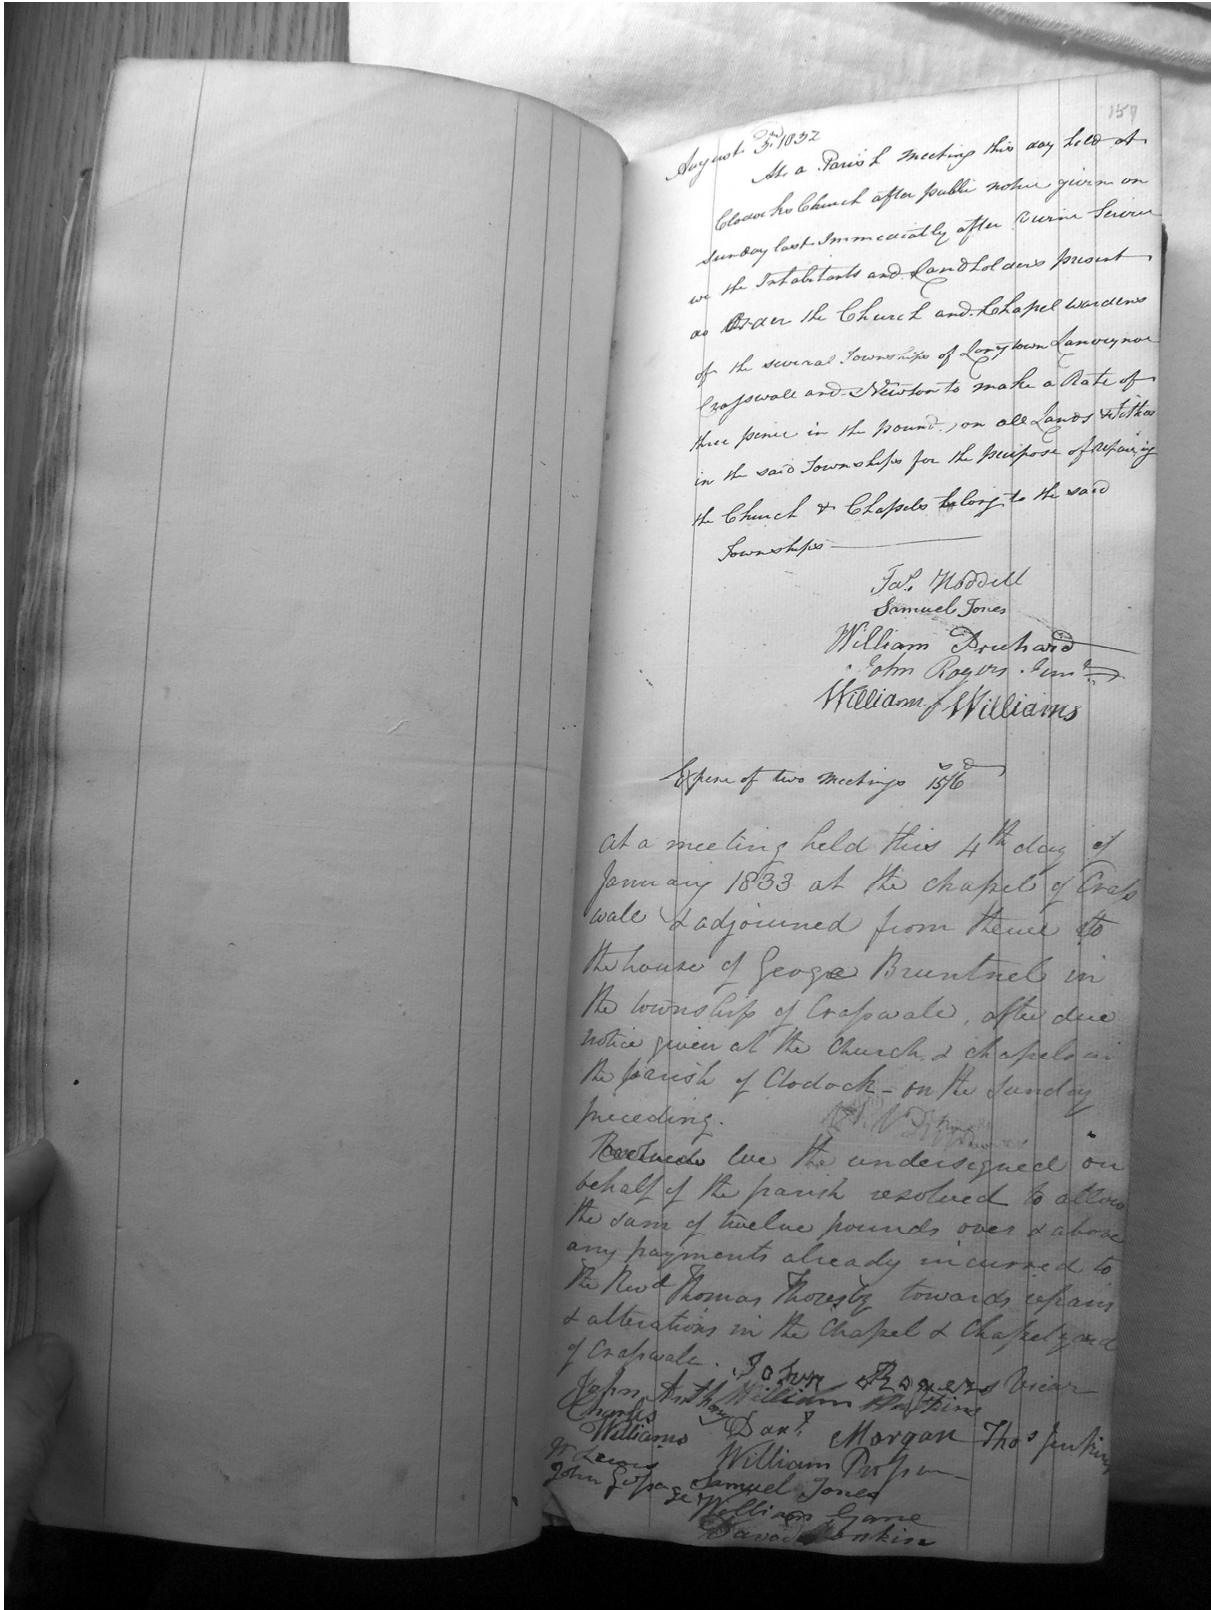 157
August 3rd 1832
At a Parish Meeting this day held at
Clodocks Church after public notice given on
Sunday last Immediatly after Devine Service
we the Inhabitants and Landholders present
do Order the Church and Chapel wardens
of the several Townships of Longtown Lanveynoe
Crasswall and Newton to make a Rate of
three pence in the pound on all Lands & Tithes
in the said Townships for the purpose of repairing
the Church & Chapels belong to the said
Townships
Jas. Hoddell
Samuel Jones
William Prichard
John Rogers Junr
William Williams
Expence of two meetings 15s/6d
At a meeting held this 4th day of
January 1833 at the chapel of Crass
wall & adjourned from thence to
the house of George Bruntnel in
the township of Crasswall, after due
notice given at the Church & chapels in
the parish of Clodock – on the Sunday
preceding.
we the undersigned on
behalf of the parish resolved to allow
the sum of twelve pounds over & above
any payments already incurred to
the Revd Thomas Thoresby towards repairs
& alterations in the Chapel & Chapel yard
of Crasswall.
John Rogers Vicar
John Anthony William Watkins
Charles
Williams Danl. Morgan Thos Jenkins
W Lewis William Prosser
John Gospage Samuel Jones
William Gane
David Jenkins